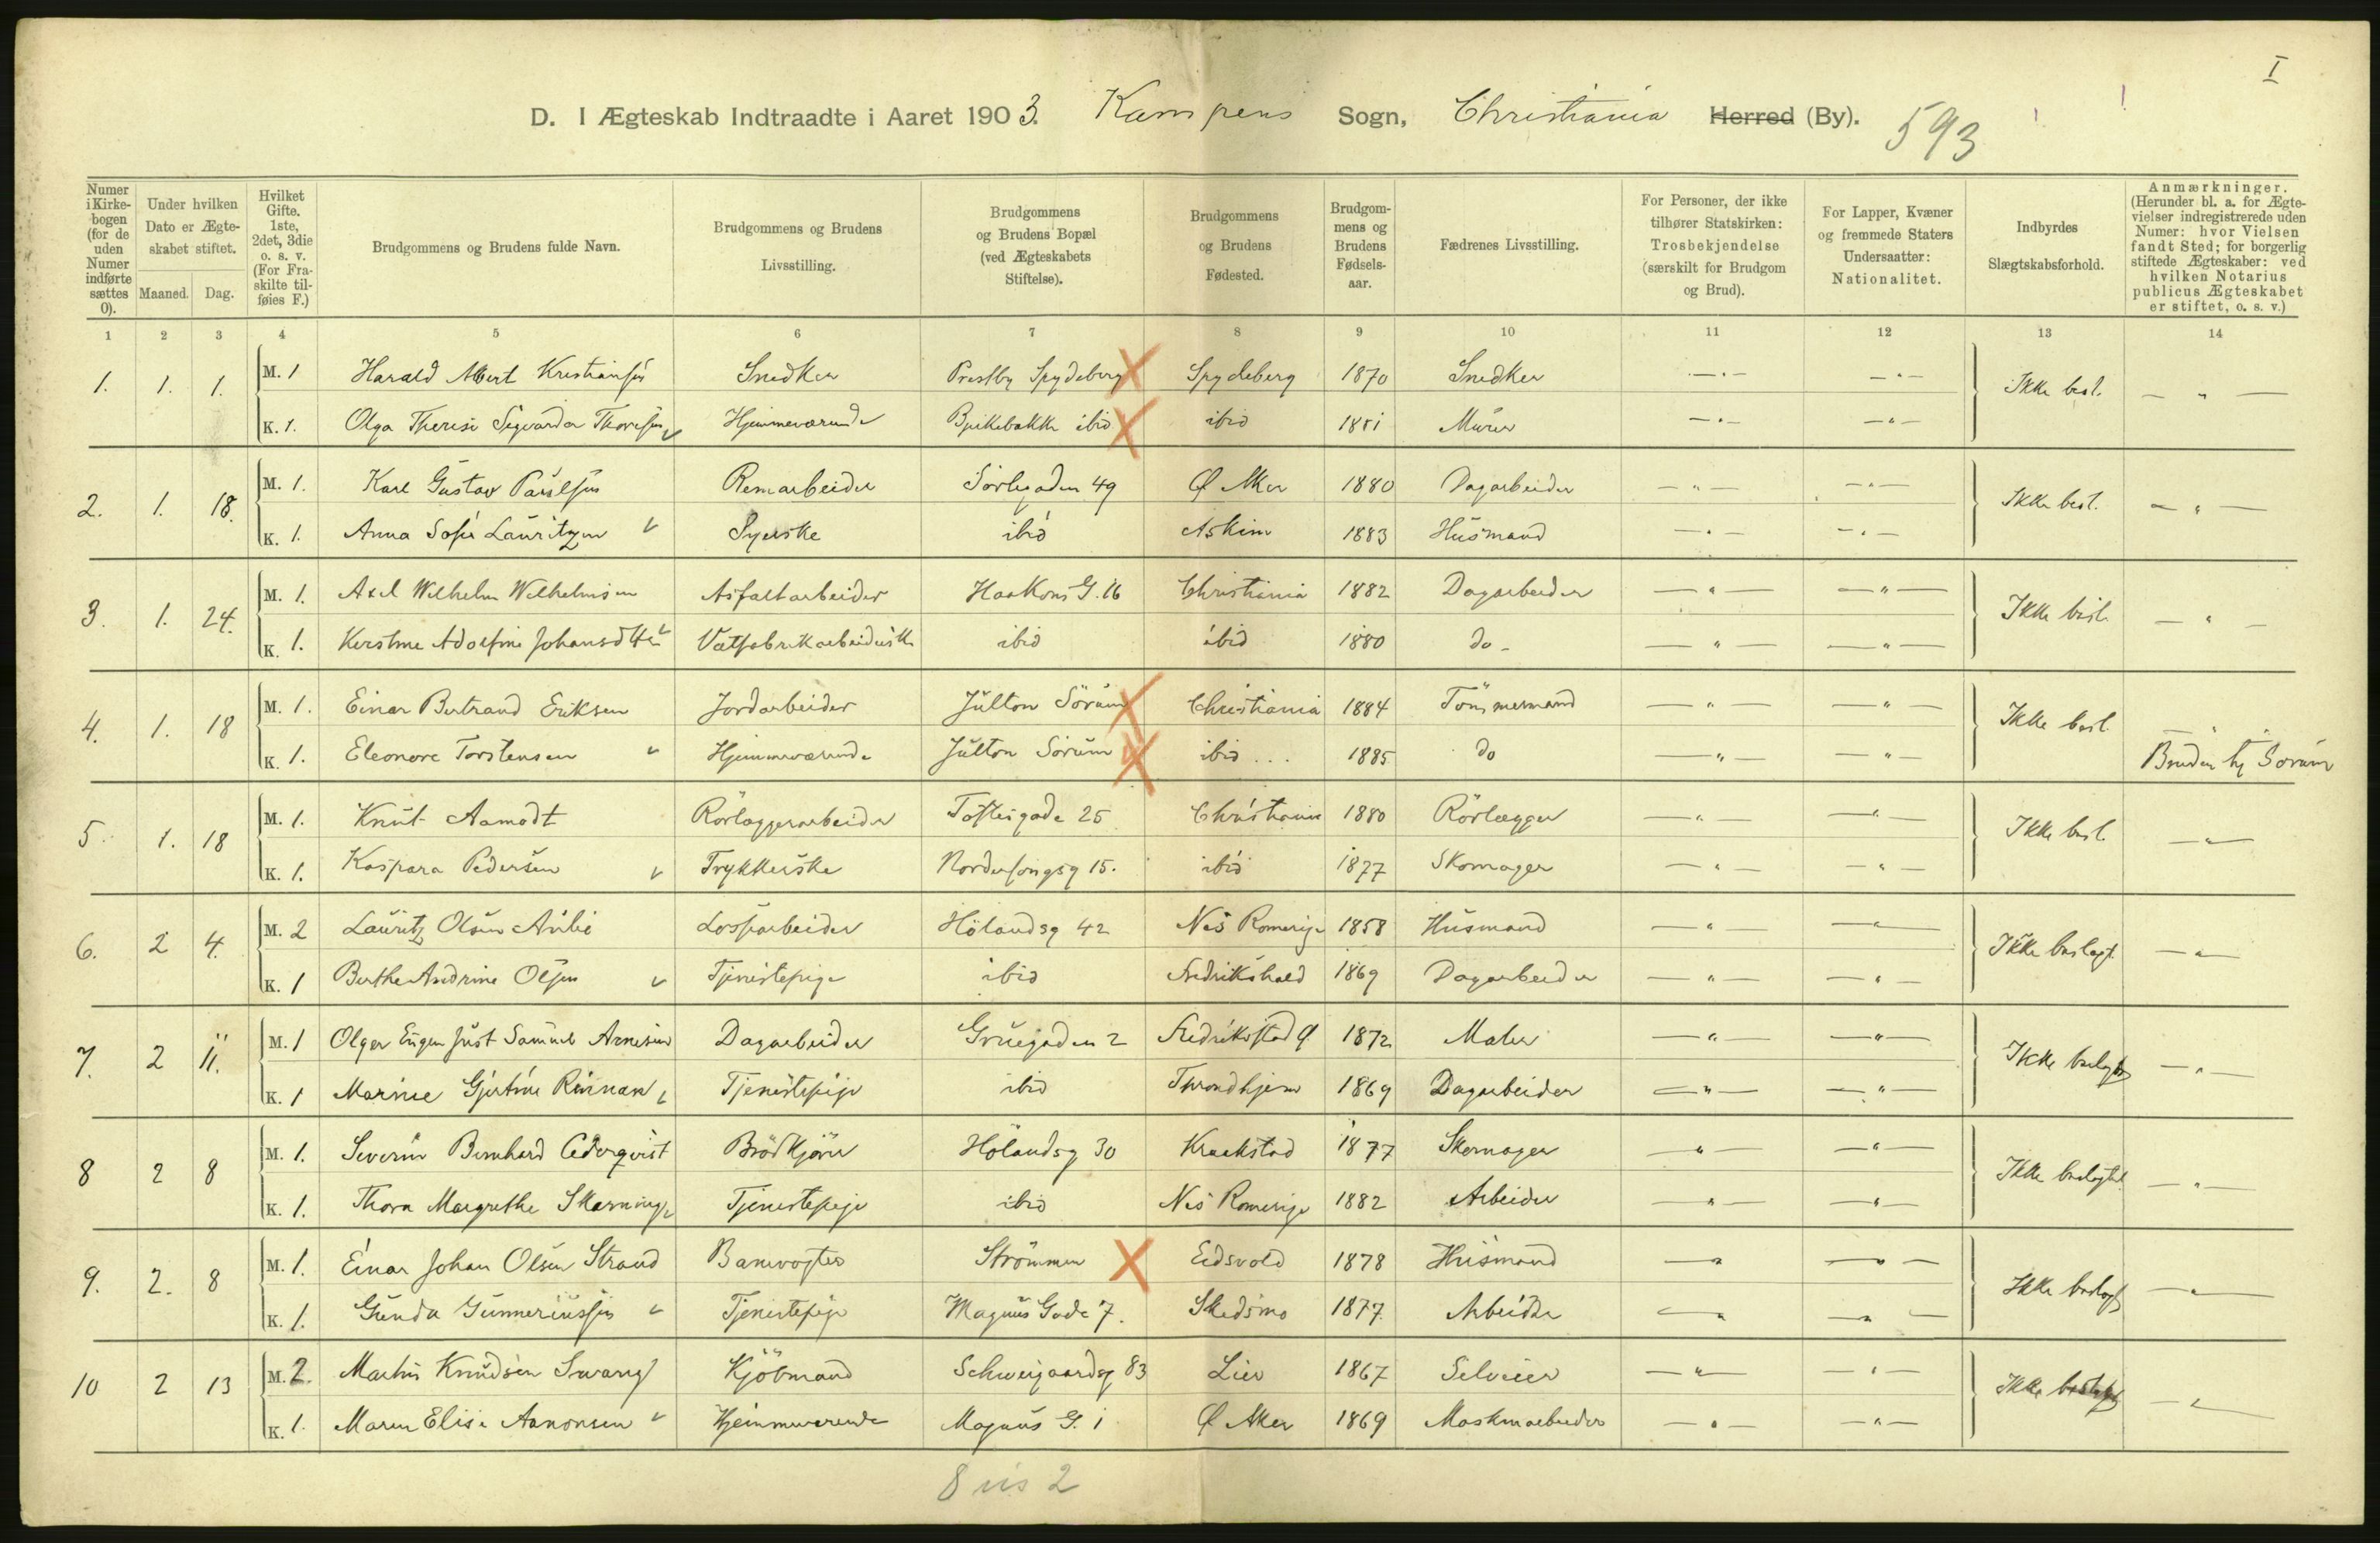 I
D. I Ægteskab Indtraadte i Aaret 1903. Kampens Sogn, Christiania Herred (By). 593
Numer i Kirke-bogen (for de uden Numer indførte sættes 0).
Under hvilken Dato er Ægte-skabet stiftet.
Maaned. Dag.
Hvilket Gifte. 1ste, 2det, 3die o. s. v. (For Fra-skilte til-føies F.)
Brudgommens og Brudens fulde Navn.
Brudgommens og Brudens Livsstilling.
Brudgommens og Brudens Bopæl (ved Ægteskabets Stiftelse).
Brudgommens og Brudens Fødested.
Brudgom-mens og Brudens Fødsels-aar.
Fædrenes Livsstilling.
For Personer, der ikke tilhører Statskirken: Trosbekjendelse (særskilt for Brudgom og Brud).
For Lapper, Kvæner og fremmede Staters Undersaatter: Nationalitet.
Indbyrdes Slægtskabsforhold.
Anmærkninger. (Herunder bl. a. for Ægte-vielser indregistrerede uden Numer: hvor Vielsen fandt Sted; for borgerlig stiftede Ægteskaber: ved hvilken Notarius publicus Ægteskabet er stiftet, o. s. v.)
1 2 3 4 5 6 7 8 9 10 11 12 13 14
1. 1. 1. M. 1 Harald Albert Kristiansen Snedker Prestby Spydeberg Spydeberg 1870 Snedker — " — — " — Ikke besl. — " —
K. 1. Olga Therese Sigvarda Thoresen Hjemmeværende ibid ibid 1881 Murer — " — — " —
2. 1. 18. M. 1. Karl Gustav Paulsen Remarbeider Sörligaden 49 Ø Aker 1880 Dagarbeider — " — — " — Ikke besl. — " —
K. 1. Anna Sofie Lauritzen Syerske ibid Askim 1883 Husmand — " — — " —
3. 1. 24. M. 1. Axel Wilhelm Wilhelmsen Asfaltarbeider Haakons G. 16 Christiania 1882 Dagarbeider — " — — " — Ikke besl. — " —
K. 1. Kristine Adolfine Johansdtter Vatfabrikarbeiderske ibid ibid 1880 do — " — — " —
4. 1. 18 M. 1. Einar Bertrand Eriksen Jordarbeider Julton Sörum Christiania 1884 Tömmermand — " — — " — Ikke besl.
K. 1. Eleonore Torstensen Hjemmeværende Julton Sörum ibid 1885 do — " — — " — Bruden Sörum
5. 1. 18 M. 1. Knut Aamodt Rörlæggerarbeider Toftesgade 25 Christiania 1880 Rörlægger — " — — " — Ikke besl. — " —
K. 1. Kaspara Pedersen Trykkerske 15. ibid 1877 Skomager — " — — " —
6. 2 4. M. 2 Lauritz Olsen Aulie Lossarbeider Hölandsg 42 Nes Romerige 1858 Husmand — " — — " — Ikke beslegt. — " —
K. 1 Berthe Andrine Olsen Tjenestepige ibid Fredrikshald 1869 Dagarbeider — " — — " —
7. 2 11. M. 1 Olger Eugen Just Samuel Arnesen Dagarbeider Gruegaden 2 Fredrikstad 1872 Maler — " — — " — Ikke beslegt — " —
K. 1 Marine Gjertine Rinnan Tjenestepige ibid Throndhjem 1869 Dagarbeider — " — — " —
8 2 8 M. 1. Severin Bernhard Cederqvist Brödkjörer Hölandsg 30 Kraakstad 1877 Skomager — " — — " — Ikke beslegtet — " —
K. 1. Thora Margrethe Skarning Tjenestepige ibid Nes Romerige 1882 Arbeider — " — — " —
9. 2. 8 M. 1. Einar Johan Olsen Strand Banevogter Strömmen Eidsvold 1878 Husmand — " — — " — Ikke beslegt — " —
K. 1. Gunda Gunneriussen Tjenestepige Magnus Gade 7. Skedsmo 1877 Arbeider — " — — " —
10 2 13 M. 2. Martin Knudsen Kjöbmand Schweigaardsg 83 Lier 1867 Selveier — " — — " — Ikke beslegt — " —
K. 1. Maren Elise Aanonsen Hjemmeværende Magnus G. 1 Ø Aker 1869 Maskinarbeider — " — — " —